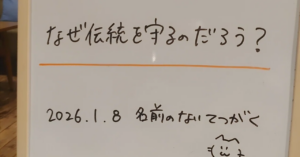 なぜ伝統を守るのだろう？
2026.1.8 名前のないてつがく